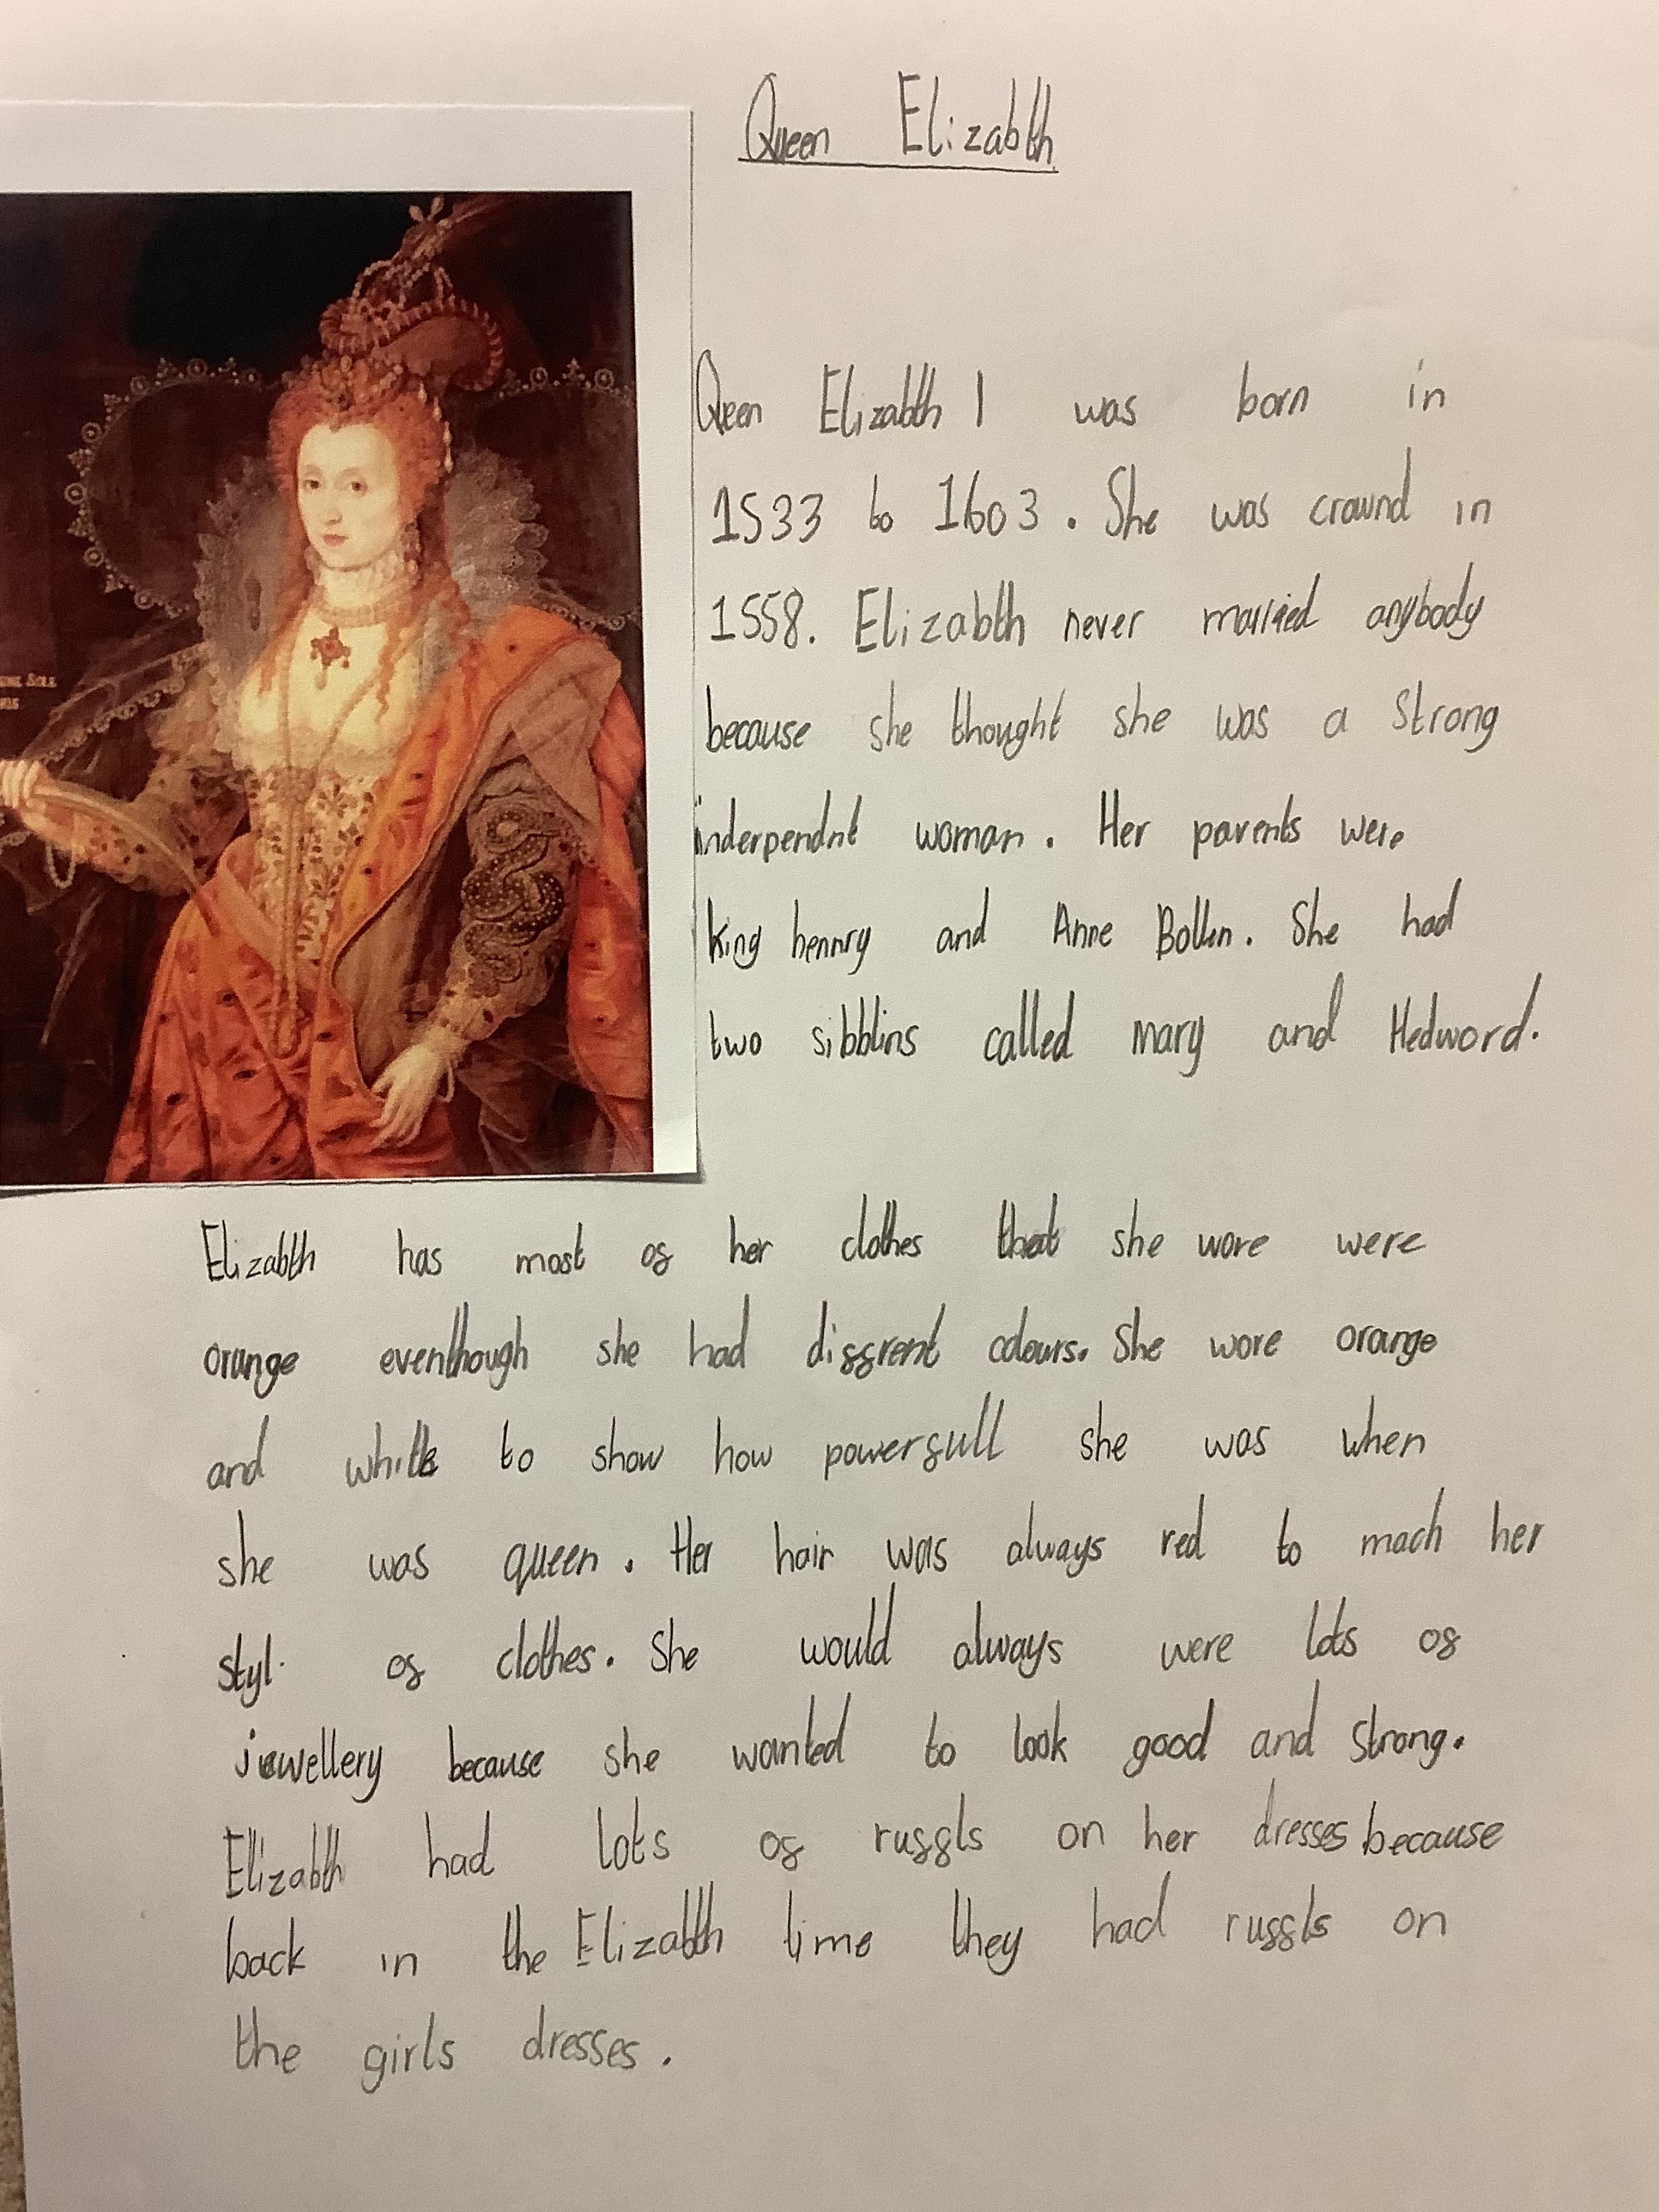 Queen Elizabth
Queen Elizabth I was born in
1533 to 1603. She was crownd in
1558. Elizabth never married anybody
because she thought she was a strong
inderpendnt woman. Her parents were
King hennry and Anne Bollen. She had
two sibblins called mary and Hedword.
Elizabth has most of her clothes that she wore were
orange eventhough she had diffrent colours. She wore orange
and white to show how powerfull she was when
she was queen. Her hair was always red to mach her
styl of clothes. She would always were lots of
jewellery because she wanted to look good and strong.
Elizabth had lots of ruffls on her dresses because
back in the Elizabth time they had ruffls on
the girls dresses.